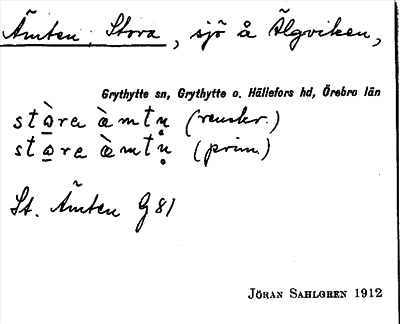 Ämten, Stora, sjö å Älgviken,
Grythytte sn, Grythytte o. Hällefors hd, Örebro län
stò̱ra àmtṇ (renskr.)
sto̱ra àmtṇ (prim.)
St. Ämten G 81
JÖRAN SAHLGREN 1912